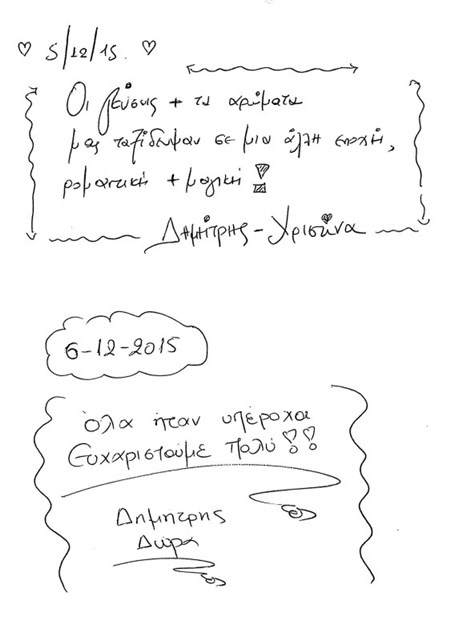 ♡ 5/12/15. ♡
Οι γεύσεις + τα αρώματα
μας ταξίδεψαν σε μια άλλη εποχή,
ρομαντική + μαγική!
Δημήτρης - Χριστίνα
6-12-2015
Όλα ήταν υπέροχα
Ευχαριστούμε πολύ!!
Δημήτρης
Δώρα